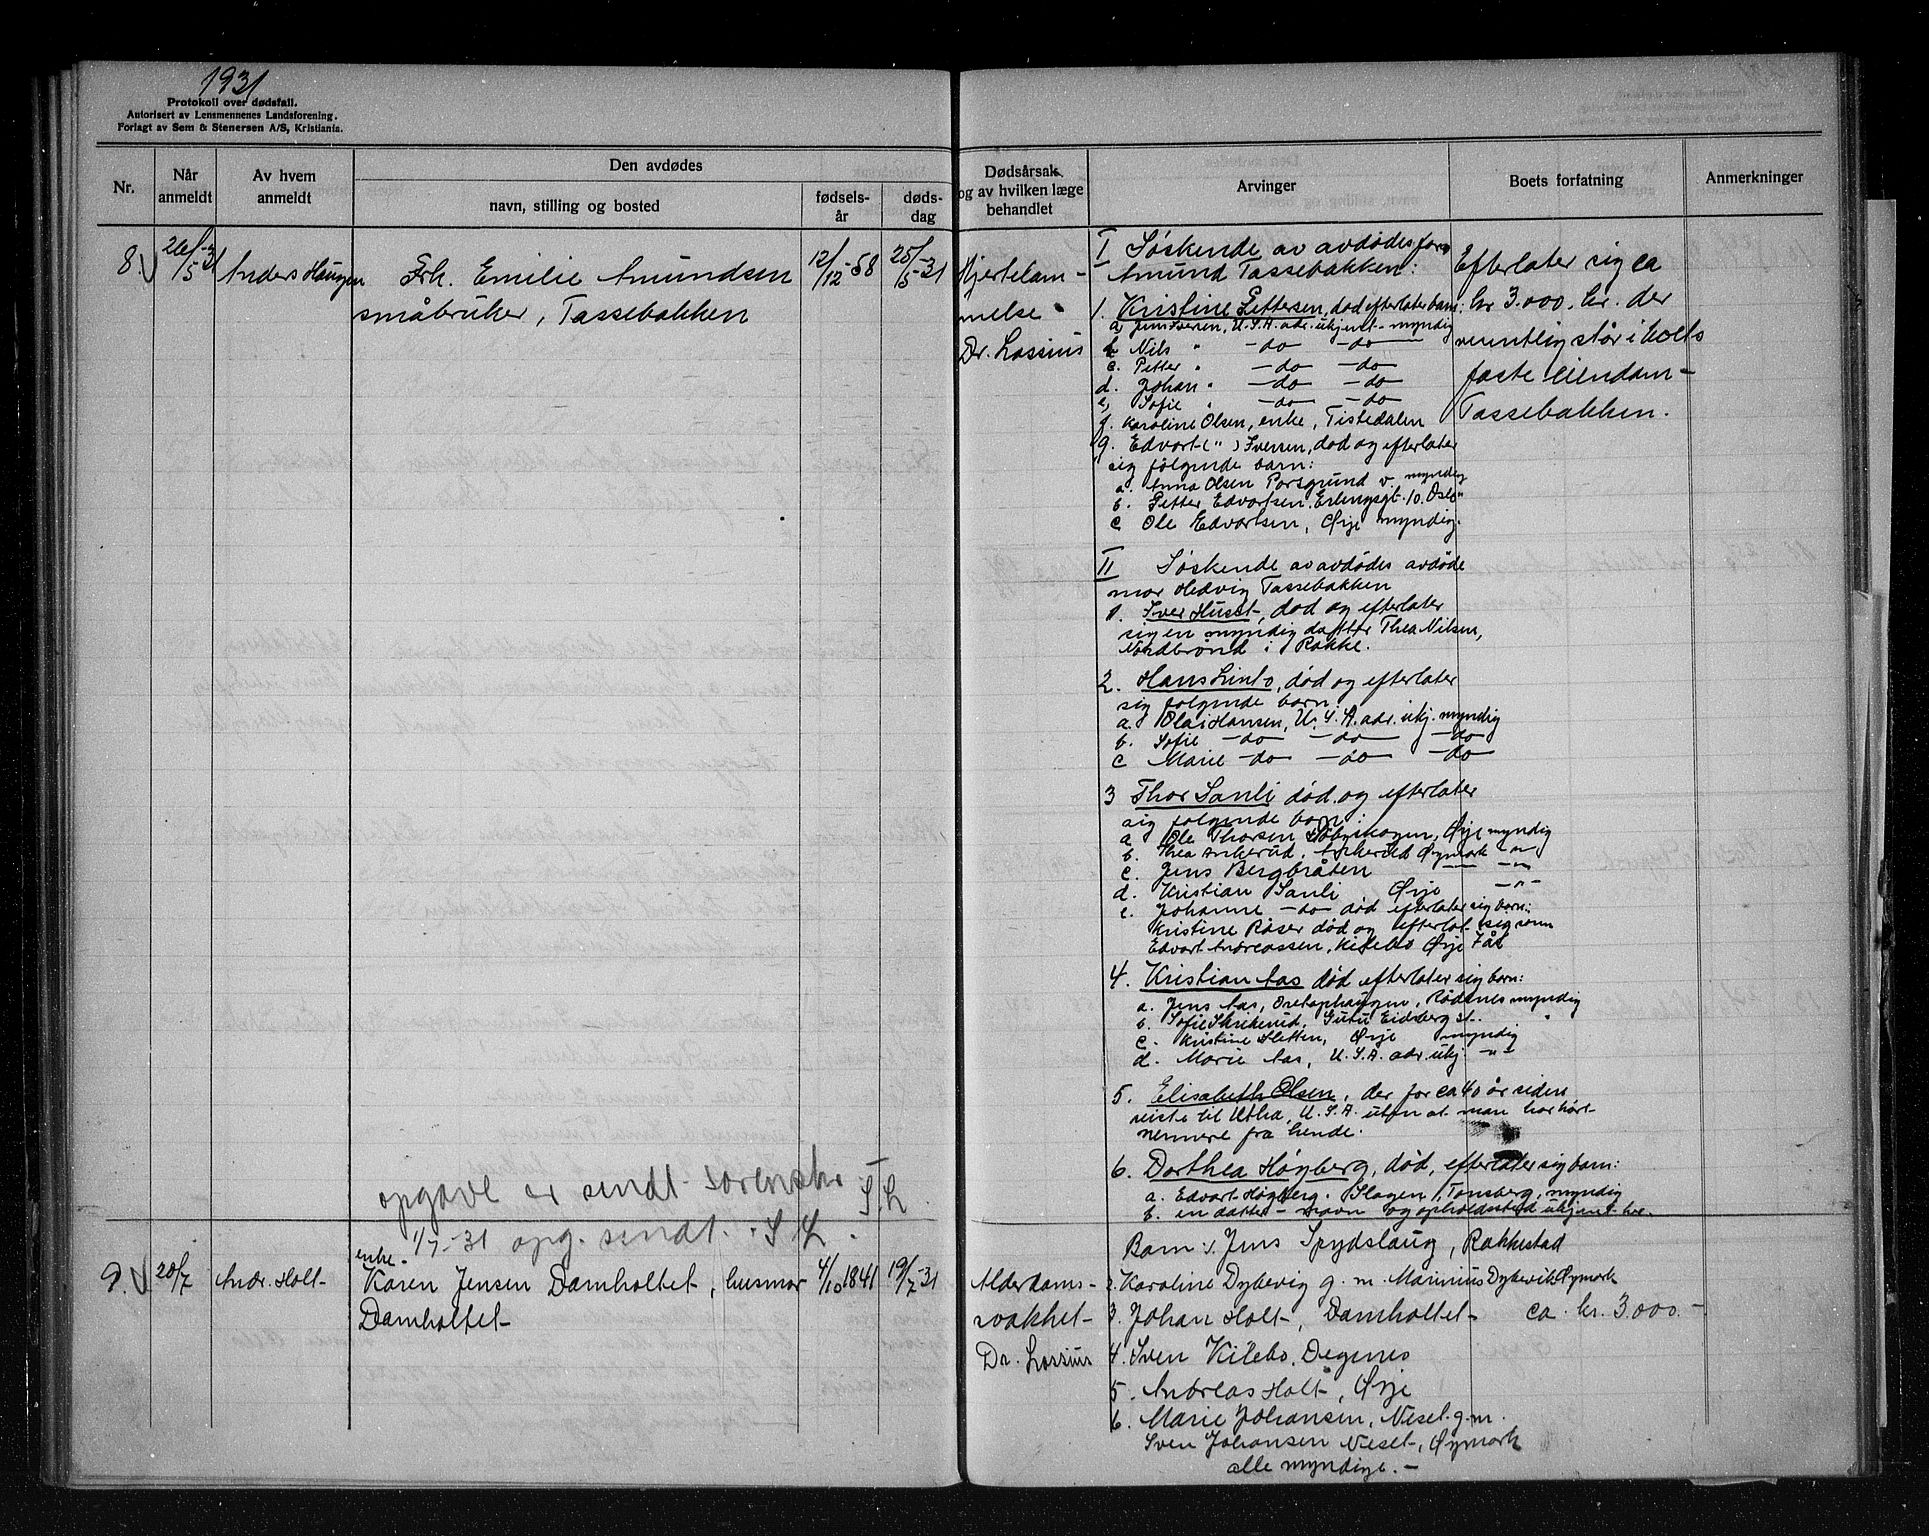 1931
Protokoll over dødsfall.
Autorisert av Lensmennenes Landsforening.
Forlagt av Sem & Stenersen A/S, Kristiania.
Nr.
Når anmeldt
Av hvem anmeldt
Den avdødes
navn, stilling og bosted
fødsels-år
døds-dag
Dødsårsak og av hvilken læge behandlet
Arvinger
Boets forfatning
Anmerkninger
8. 26/5-31 Anders Haugen
Frk. Emilie Amundsen
småbruker, Tassebakken
12/12-58
25/5-31
Hjertelam-
melse
Dr. Lossius
I Søskende av avdødes far
Amund Tassebakken:
1. Kristine Pettersen, død efterlater barn:
a Jens Iversen, U.S.A. adr. ukjent - myndig
b. Nils " -do- -do-
c. Petter " -do- -do-
d. Johan " -do- -do-
e, Sofie " -do- -do-
f. Karoline Olsen, enke, Tistedalen
g. Edvart (") Iversen, død og efterlater
sig følgende barn:
a. Anna Olsen Porsgrund v. myndig
b. Petter Edvartsen, Erlingsgt. 10. Oslo "
c Ole Edvartsen, Ørje myndig.
II Søskende av avdødes avdøde
mor Hedvig Tassebakken
1. Iver Huset, død og efterlater
sig en myndig datter Thea Nilsen,
Nordbrønd i Rakke.
2. Hans Linto, død og efterlater
sig følgende barn.
a. Olai Hansen, U.S.A. adr. ukj. myndig
b. Sofie -do- -do- -do
c Marie -do- -do- -do
3 Thor Sanli død og efterlater
sig følgende barn:
a Ole Thorsen Ørje myndig
b. Thea Ankerud, Ankerud Øymark -"-
c. Jens Bergbråten — -"-
d. Kristian Sanli Ørje -"-
e. Johanne -do- død efterlater sig barn:
Kristine Røser død og efterlot sig sønn
Edvart Andreassen, Kilebo Ørje
4. Kristian Aas død efterlater sig barn:
a. Jens Aas, Rødenes myndig
b. Sofie Skrikerud, Eidsberg st. "
c. Kristine Sletten, Ørje myndig
d. Marie Aas, U.S.A. adr. ukj. -"-
5. Elisabeth Olsen, der for ca 40 år siden
reiste til Utha, U.S.A. uten at man har hørt
nermere fra hende.
6. Dorthea Høgberg, død, efterlater sig barn:
a. Edvart Høgberg. Slagen, Tønsberg, myndig
b. en datter - navn og opholdssted ukjent
Efterlater sig ca
kr 3.000. kr. der
vesentlig står i boets
faste eiendom -
Tassebakken.
opgave er sendt sorenskr. S.L.
1/7-31 opg. sendt. S.L.
9. 20/7 Andr. Holt
enke
Karen Jensen Damholtet, husmor
Damholtet
4/10 1841
19/7-31
Alderdoms-
svakhet
Dr. Lossius
Barn: 1. Jens Spydslaug, Rakkestad
2. Karoline Dybevig g.m. Marinius Dybevik Øymark
3. Johan Holt, Damholtet
4. Sven Kilebo, Degernes
5. Andreas Holt, Ørje
6. Marie Johansen, Neset g.m.
Sven Johansen Neset, Øymark
alle myndige. -
ca. kr. 3.000. -